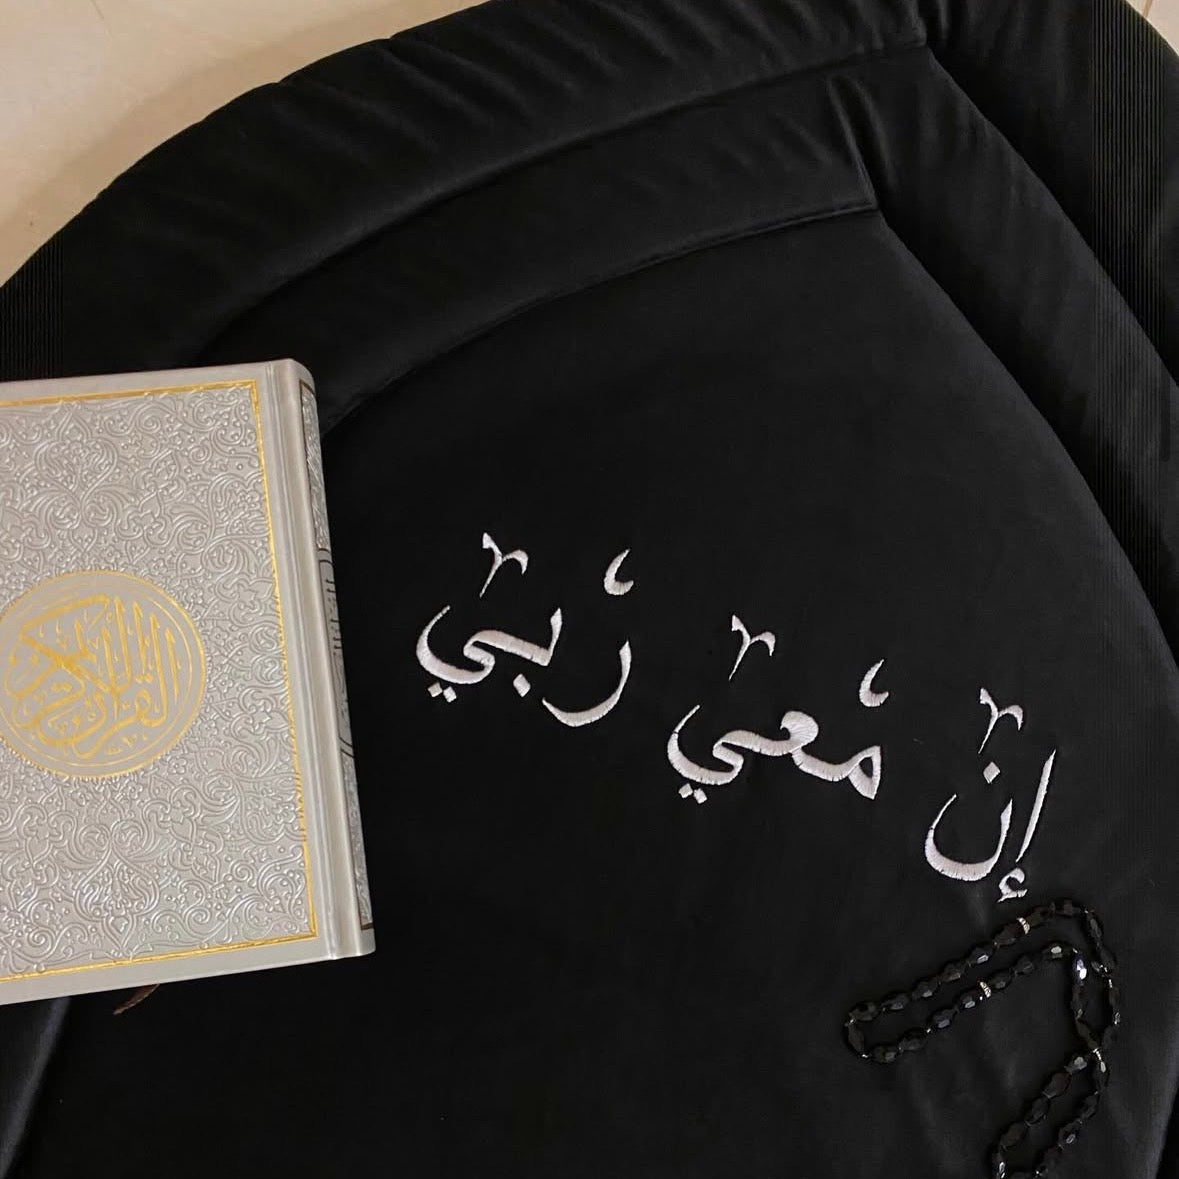 إن معي ربي
القرآن الكريم